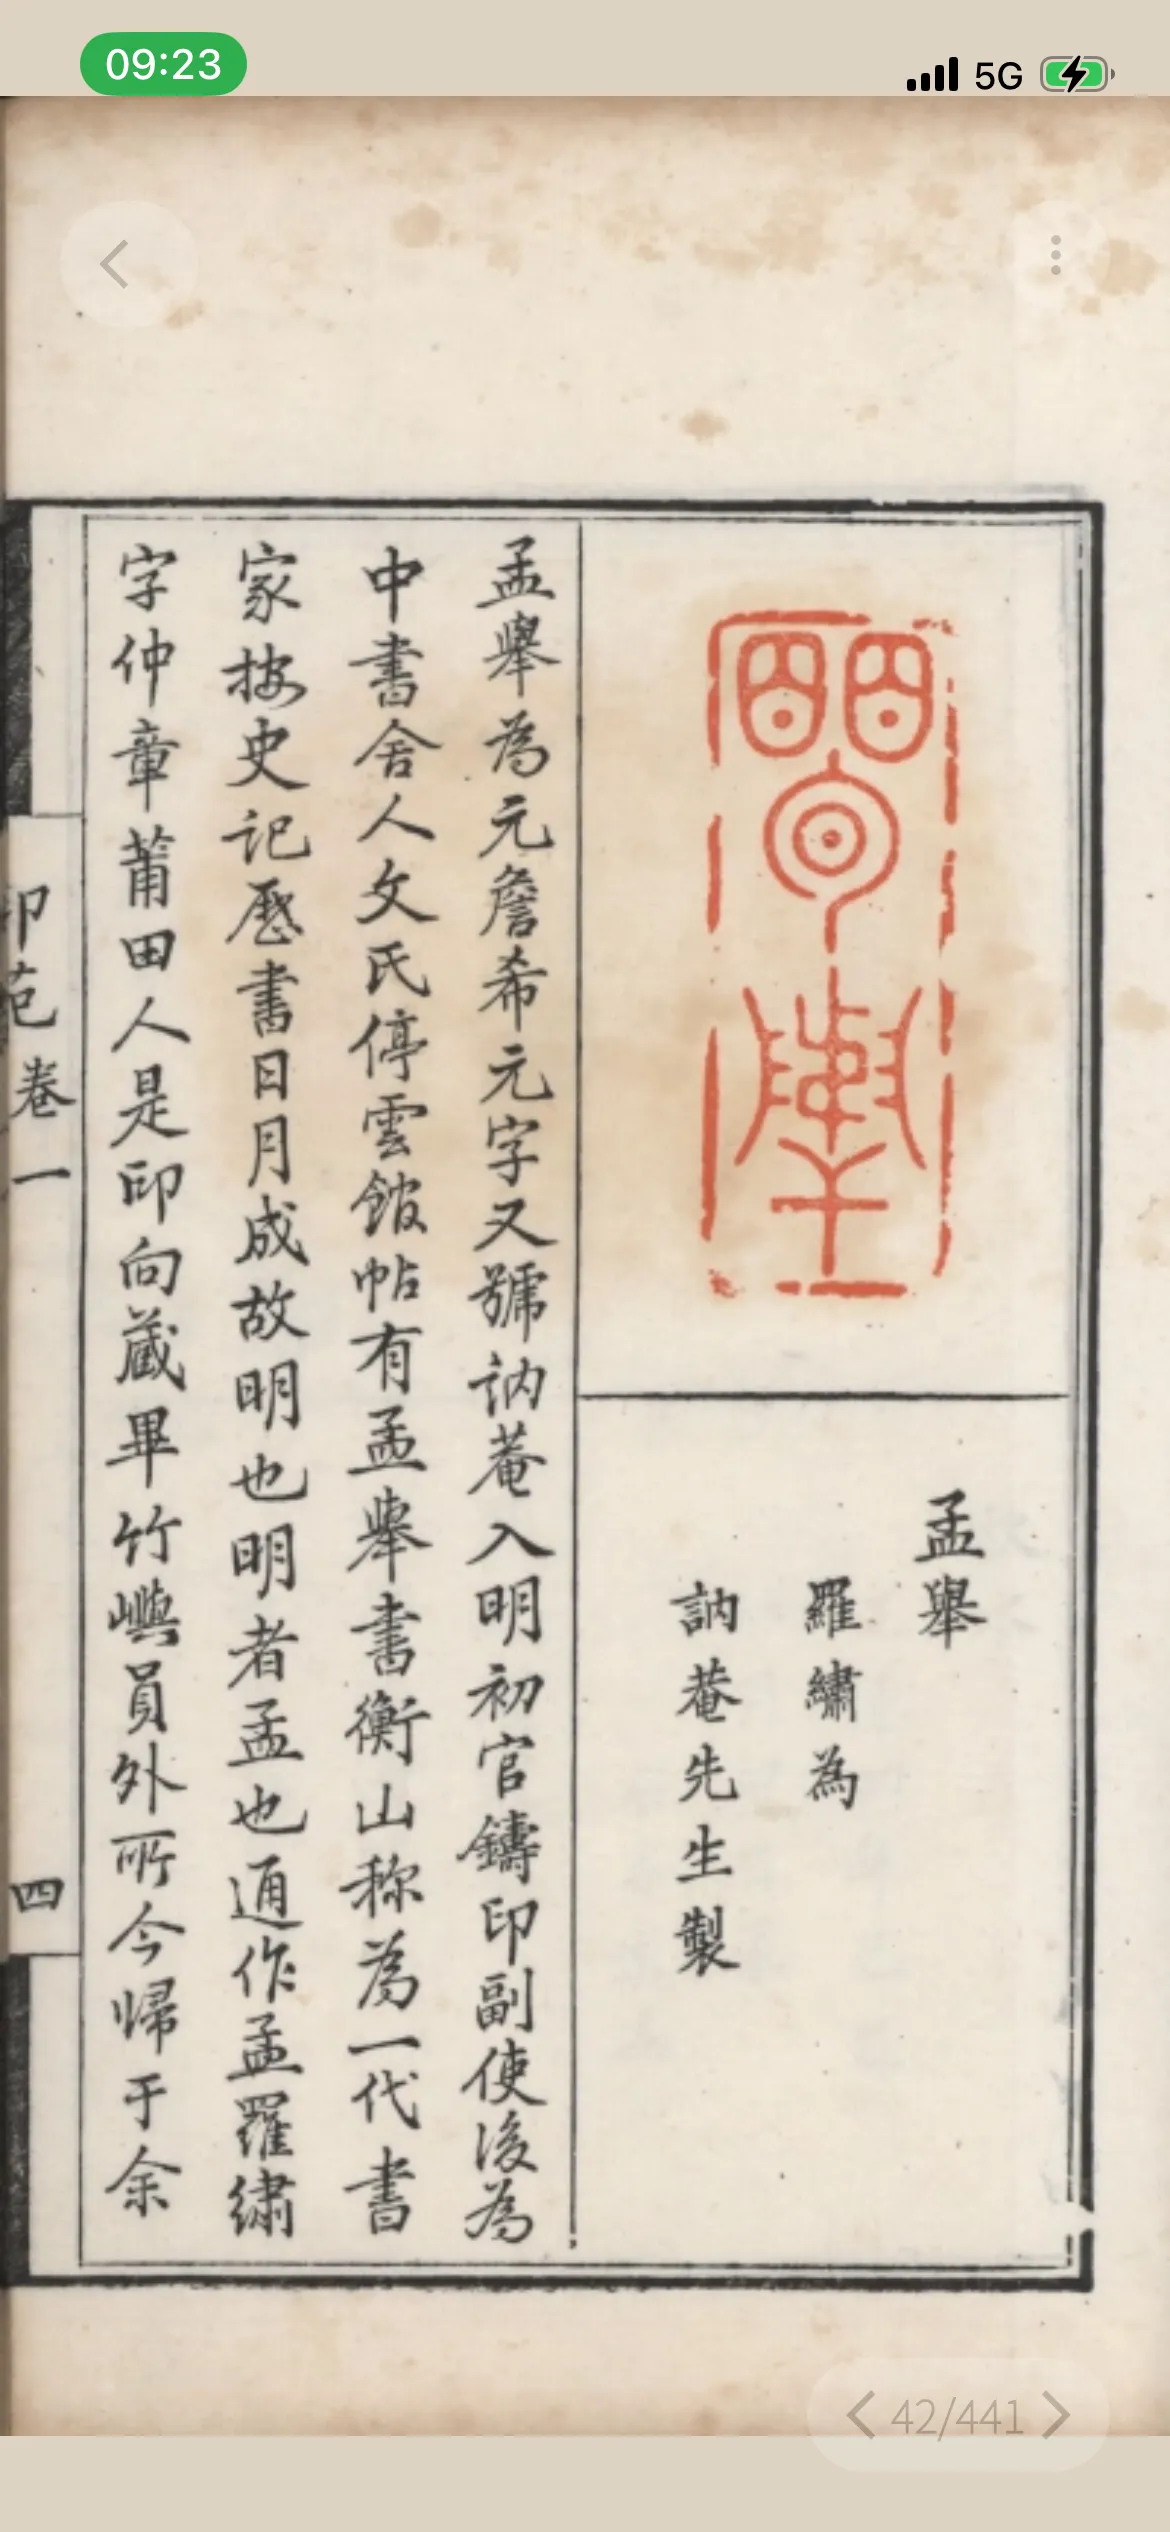 09:23
5G
孟舉
羅繡為
訥菴先生製
孟舉為元詹希元字又號訥菴入明初官鑄印副使後為
中書舍人文氏停雲館帖有孟舉書衡山称為一代書
家按史記歷書日月成故明也明者孟也通作孟羅繡
字仲章莆田人是印向藏畢竹嶼員外所今歸于余
印范卷一
四
42/441